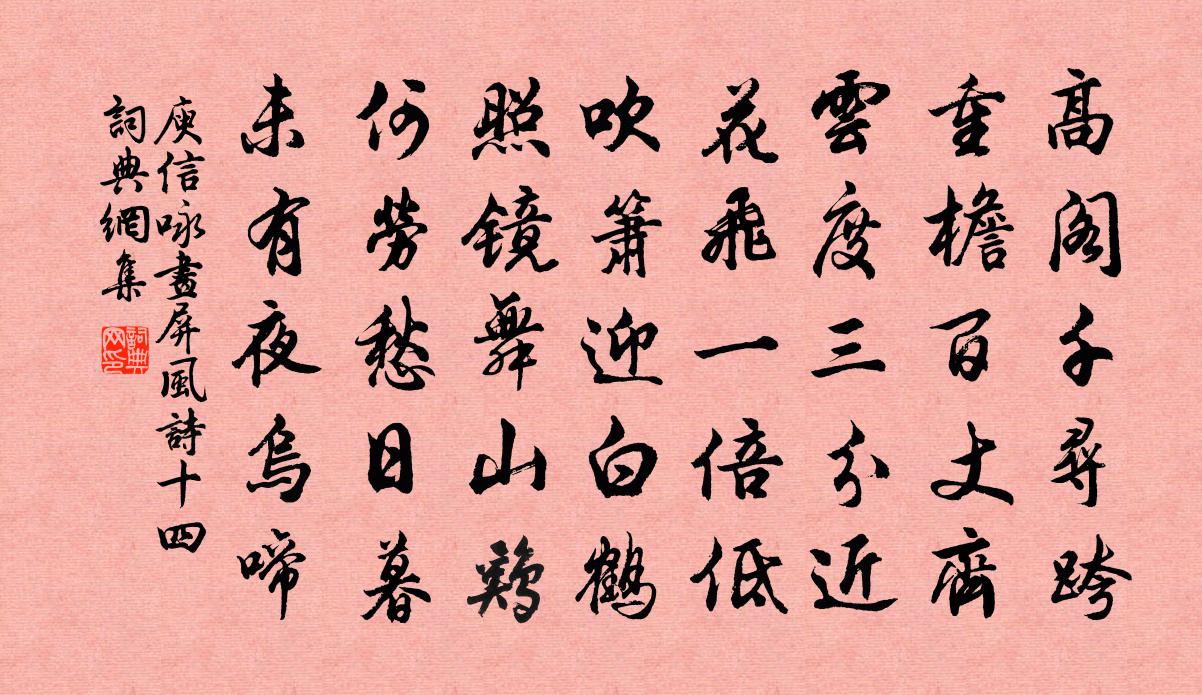 高閣千尋跨
重檐百丈齊
雲度三分近
花飛一倍低
吹簫迎白鶴
照鏡舞山鷄
何勞愁日暮
未有夜烏啼
庾信咏畫屏風詩十四
詞典網集
詞典
网印